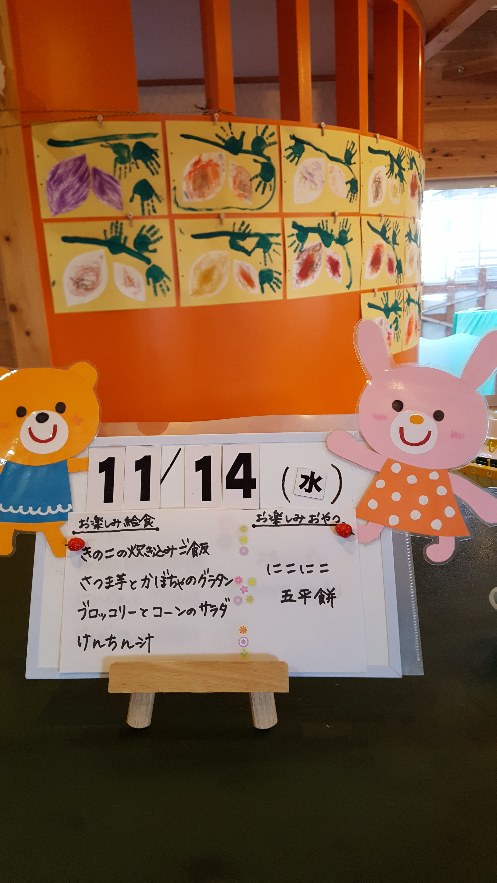 11/14(水)
お楽しみ給食
きのこの炊き込みご飯
さつま芋とかぼちゃのグラタン
ブロッコリーとコーンのサラダ
けんちん汁
お楽しみおやつ
にこにこ
五平餅